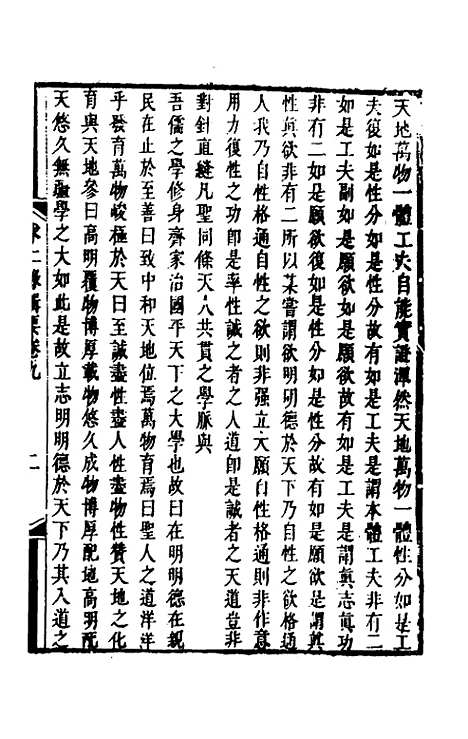 天地萬物一體工夫自能實證渾然天地萬物一體性分如是工
夫復如是性分如是性分故有如是工夫是謂本體工夫非有二
如是工夫副如是願欲如是願欲故有如是工夫是謂眞志眞功
非有二如是願欲復如是性分如是性分故有如是願欲是謂眞
性眞欲非有二所以某嘗謂欲明明德於天下乃自性之欲格通
人我乃自性格通自性之欲則非强立大願自性格通則非作意
用力復性之功卽是率性誠之者之人道卽是誠者之天道豈非
對針直縫凡聖同條天人共貫之學脈與
吾儒之學修身齊家治國平天下之大學也故曰在明明德在親
民在止於至善曰致中和天地位焉萬物育焉曰聖人之道洋洋
乎發育萬物峻極於天曰至誠盡性盡人性盡物性贊天地之化
育與天地參曰高明覆物博厚載物悠久成物博厚配地高明配
天悠久無疆學之大如此是故立志明明德於天下乃其入道之
求仁錄輯要卷九
二